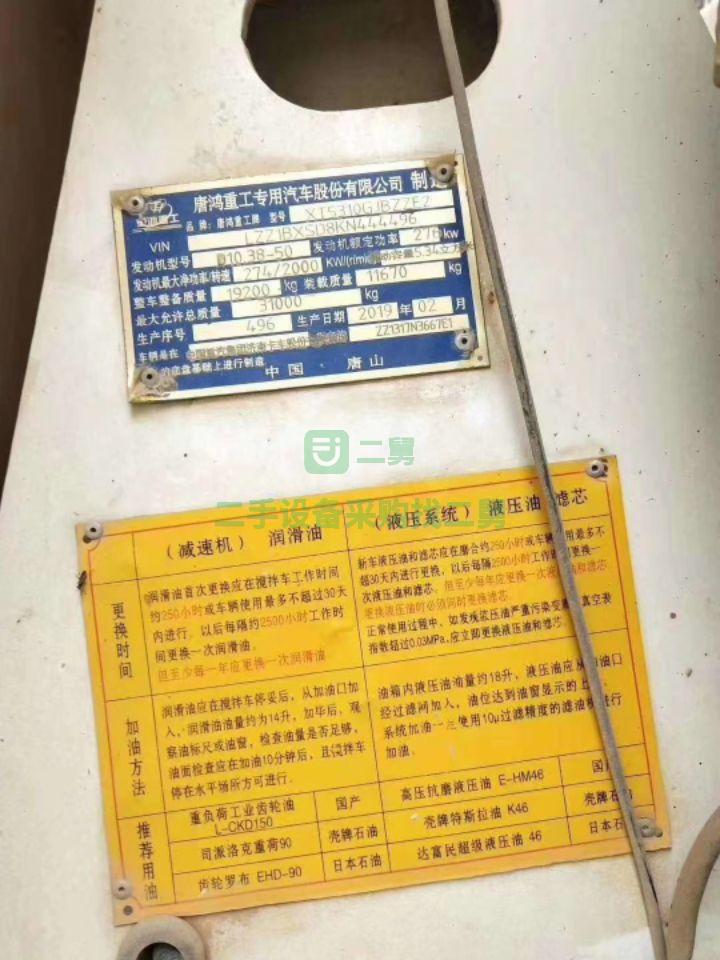 唐鸿重工专用汽车股份有限公司 制造
唐鸿重工 品牌：唐鸿重工牌 型号 XT5310GJBZZE2
VIN LZZ1BXSD8KN444496
发动机型号 D10.38-50 发动机额定功率 276 kw
发动机最大净功率/转速 274/2000 KW/(r/min) 5.34立方米
整车整备质量 19200 kg 装载质量 11670 kg
最大允许总质量 31000 kg
生产序号 496 生产日期 2019 年 02 月
车辆是在 中国重汽集团济南卡车股份 ZZ1317N3667E1
的底盘基础上进行制造
中国·唐山
二舅
二手设备采购找二舅
（减速机） 润滑油
（液压系统） 液压油 滤芯
更换时间
润滑油首次更换应在搅拌车工作时间
约250小时或车辆使用最多不超过30天
内进行，以后每隔约2500小时工作时
间更换一次润滑油。
但至少每一年应更换一次润滑油
新车液压油和滤芯应在磨合约250小时或车辆 用最多不
超30天内进行更换，以后每隔2500小时工作时间更换一
次液压油和滤芯。但至少每年应更换一次液 油和滤芯
更换液压油时必须同时更换滤芯。
正常使用过程中，如发现液压油严重污染变 真空表
指数超过0.03MPa，应立即更换液压油和滤芯
加油方法
润滑油应在搅拌车停妥后，从加油口加
入，润滑油油量约为14升，加毕后，观
察油标尺或油窗，检查油量是否足够，
油面检查应在加油10分钟后，且搅拌车
停在水平场所方可进行。
油箱内液压油油量约为18升，液压油应从 油口
经过滤网加入，油位达到油窗显示的上
系统加油一定使用10μ过滤精度的滤油机 进行
加油。
推荐用油
重负荷工业齿轮油 L-CKD150 国产
高压抗磨液压油 E-HM46 国
司派洛克重荷90 壳牌石油
壳牌特斯拉油 K46 壳牌
齿轮罗布 EHD-90 日本石油
达富民超级液压油 46 日本石